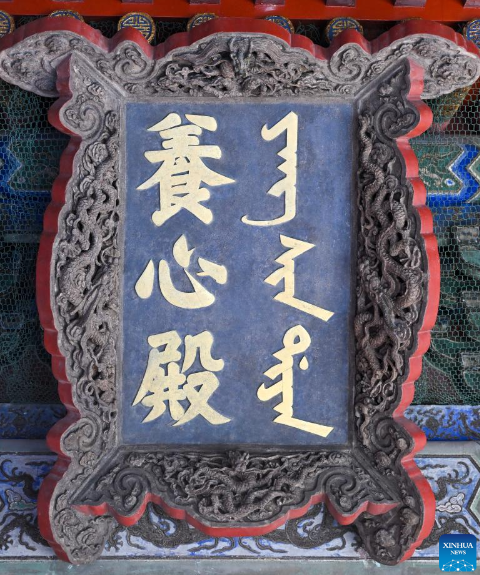 養心殿
ᠶᠠᠩ ᠰᡳᠨ ᡩᡳᠶᠠᠨ
XINHUA
NEWS